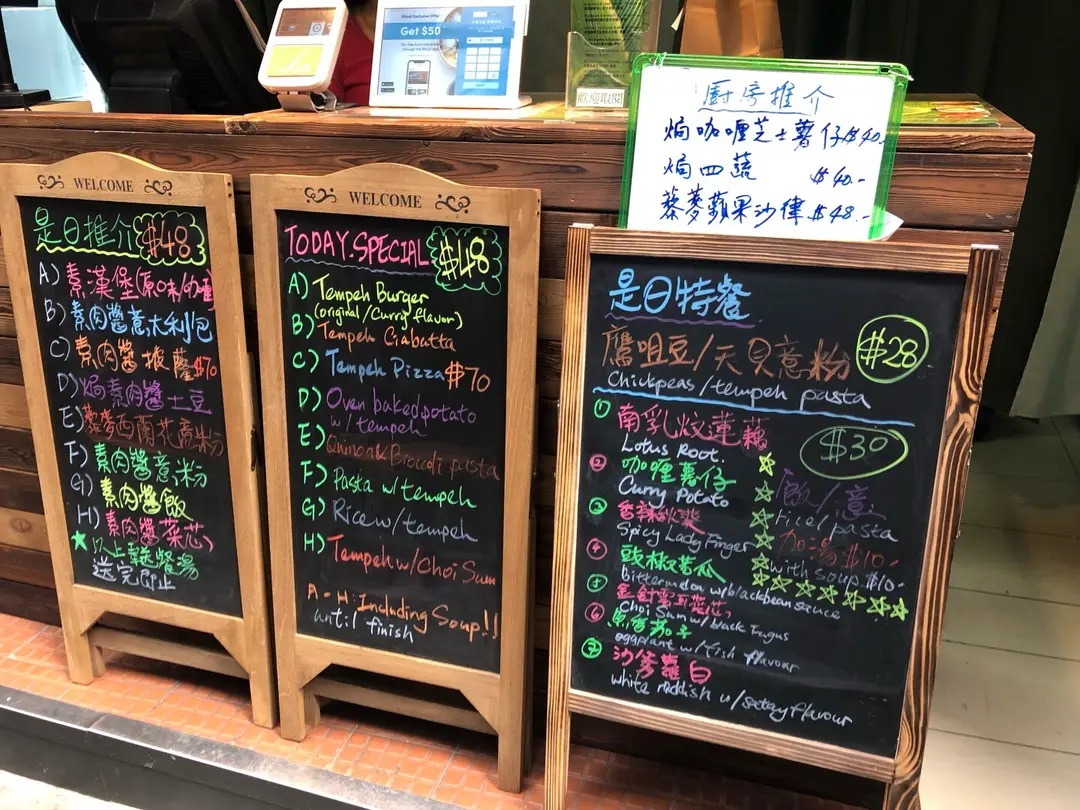 Get $50
歡迎取閱
廚房推介
焗咖喱芝士薯仔$40.-
焗四蔬 $40.-
藜麥蘋果沙律 $48.-
WELCOME
是日推介 $48
A) 素漢堡(原味/咖喱
B) 素肉醬意大利包
C) 素肉醬披薩$70
D) 焗素肉醬土豆
E) 藜麥西蘭花意粉
F) 素肉醬意粉
G) 素肉醬飯
H) 素肉醬菜芯
★以上送餐湯
送完即止
WELCOME
TODAY.SPECIAL $48
A) Tempeh Burger
(original/Curry flavor)
B) Tempeh Ciabatta
C) Tempeh Pizza $70
D) Oven baked potato
w/tempeh
E) Quinoa & Broccoli pasta
F) Pasta w/tempeh
G) Rice w/tempeh
H) Tempeh w/Choi Sum
A - H Including Soup!!
until finish
是日特餐
鷹咀豆/天貝意粉 $28
Chickpeas/tempeh pasta
① 南乳炆蓮藕 $30
Lotus Root.
② 咖喱薯仔
Curry Potato
飯/意
Rice/pasta
③ 香辣秋葵
Spicy Lady Finger
加湯$10-
with soup $10-
④ 豉椒苦瓜
bittermelon w/blackbean sauce
⑤ 金針雲耳菜芯
Choi Sum w/black Fugus
⑥ 魚香茄子
eggplant w/fish flavour
⑦ 沙爹蘿白
white raddish w/satay flavour